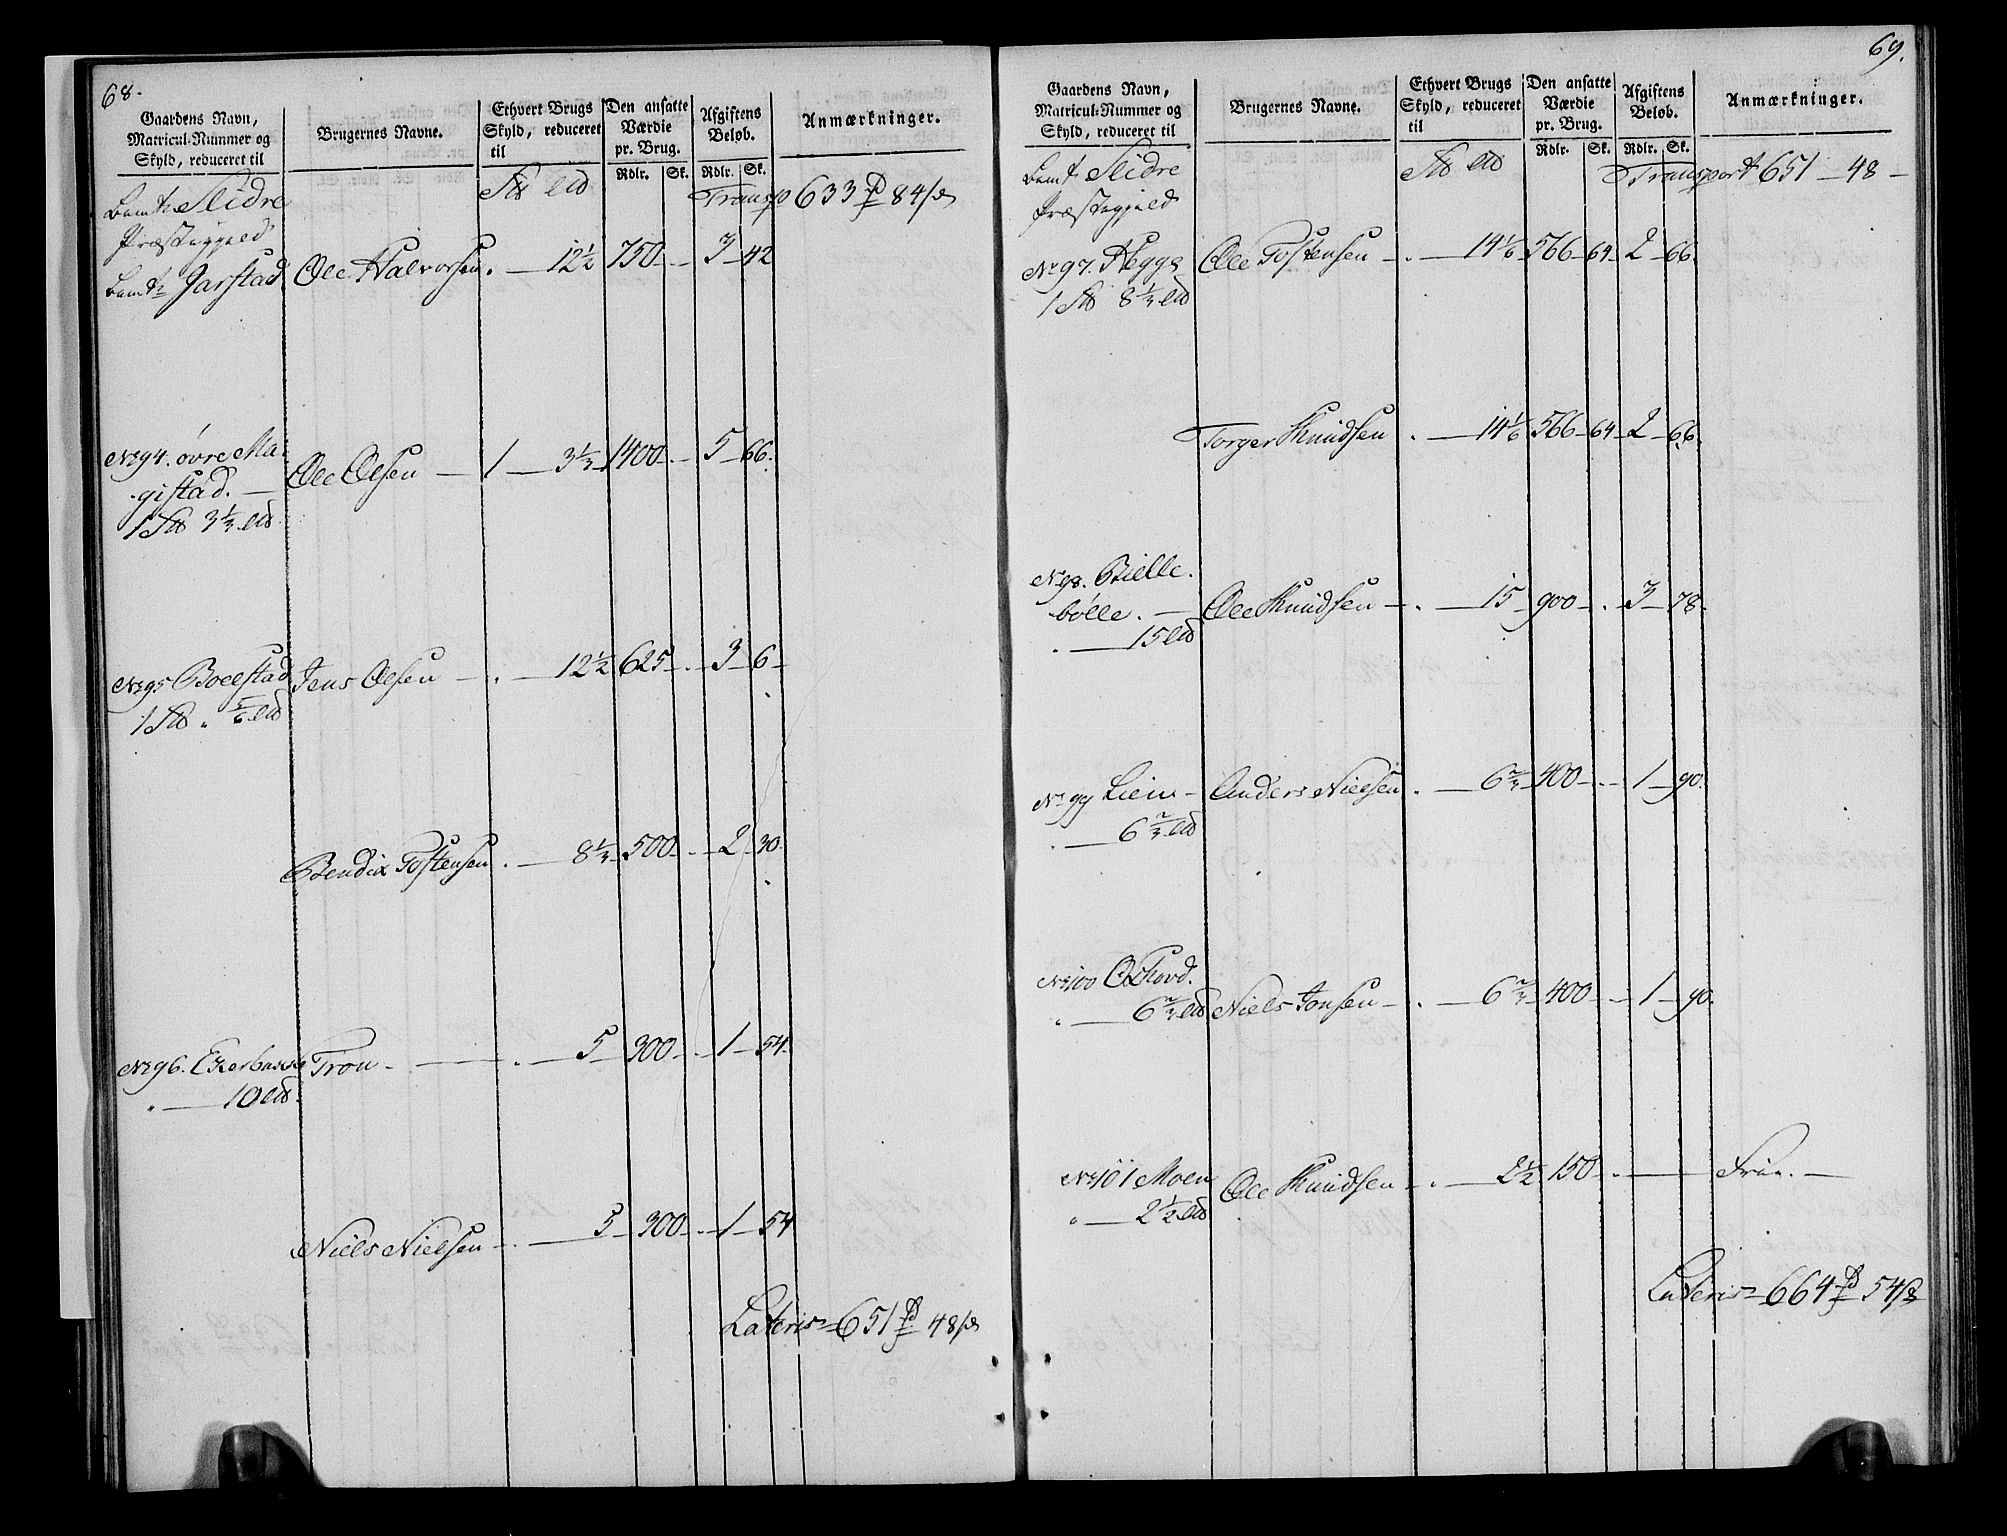 68.
Gaardens Navn, Matricul-Nummer og Skyld, reduceret til | Brugernes Navne. | Ethvert Brugs Skyld, reduceret til | Den ansatte Værdie pr. Brug. Rdlr. Sk. | Afgiftens Beløb. Rdlr. Sk. | Anmærkninger.
Slidre Transp 633 84
Præstegjeld
Garstad Ole Halvorsen . — 12½ 750 — 3 — 42
No 94. øvre Ma-
gistad. — Ole Olsen — 1 — 3⅓ 1400 — 5 — 66.
1 3⅓
No 95 Boelstad Jens Olsen — . — 12½ 625 — . — 3 — 6 —
1 " 5/6
Bendix Tostensen . — 8⅓ 500 — 2 — 30.
No 96. Tron — . — 5 — 300 — 1 — 54.
" — 10
Niels Nielsen — . — 5 — 300 — 1 — 54
Lateris 651 48
69.
Gaardens Navn, Matricul-Nummer og Skyld, reduceret til | Brugernes Navne. | Ethvert Brugs Skyld, reduceret til | Den ansatte Værdie pr. Brug. Rdlr. Sk. | Afgiftens Beløb. Rdlr. Sk. | Anmærkninger.
Slidre Transport 651 — 48 —
Præstegjeld
No 97. Hegge Ole Tostensen — . — 14 1/6 566 — 64 — 2 — 66.
1 8⅓
Torger Knudsen . — 14 1/6 566 — 64 — 2 — 66.
No 98. Bielle-
bölle. — Ole Knudsen — . — 15 — 900 — . — 3 — 78 —
. — 15
No 99 Liem — Anders Nielsen . — 6⅔ 400 — . — 1 — 90.
. — 6⅔
No 100
" — 6⅔ Niels Jonsen — . — 6⅔ 400 — 1 — 90.
No 101 Moen Ole Knudsen — . — 2½ 150 — . — Frie. —
" — 2½
Lateris 664 54